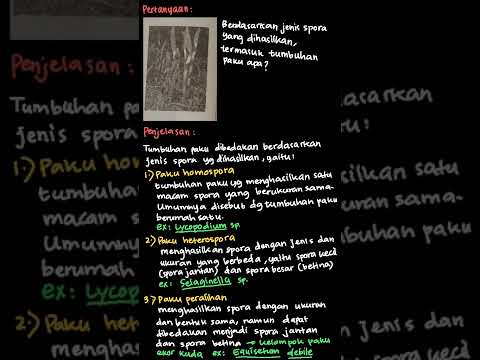 Pertanyaan :
Berdasarkan jenis spora
yang dihasilkan,
termasuk tumbuhan
paku apa?
Penjelasan :
Tumbuhan paku dibedakan berdasarkan
jenis spora yg dihasilkan, yaitu :
1.) Paku homospora
tumbuhan paku yg menghasilkan satu
macam spora yang berukuran sama.
Umumnya disebut dg tumbuhan paku
berumah satu.
ex: Lycopodium sp.
2.) Paku heterospora
menghasilkan spora dengan jenis dan
ukuran yang berbeda, yaitu spora kecil
(spora jantan) dan spora besar (betina)
ex: Selaginella sp.
3.) Paku peralihan
menghasilkan spora dengan ukuran
dan bentuk sama, namun dapat
dibedakan menjadi spora jantan
dan spora betina → kelompok paku
ekor kuda ex: Equisetum debile
Penjelasan :
Tumbuhan p
jenis spora
1.) Paku hom
tumbuha
macam
Umumny
berumah
ex: Lycop
2.) Paku he
menghasi
dasarkan
itu :
satu
n sama.
han paku
jenis dan